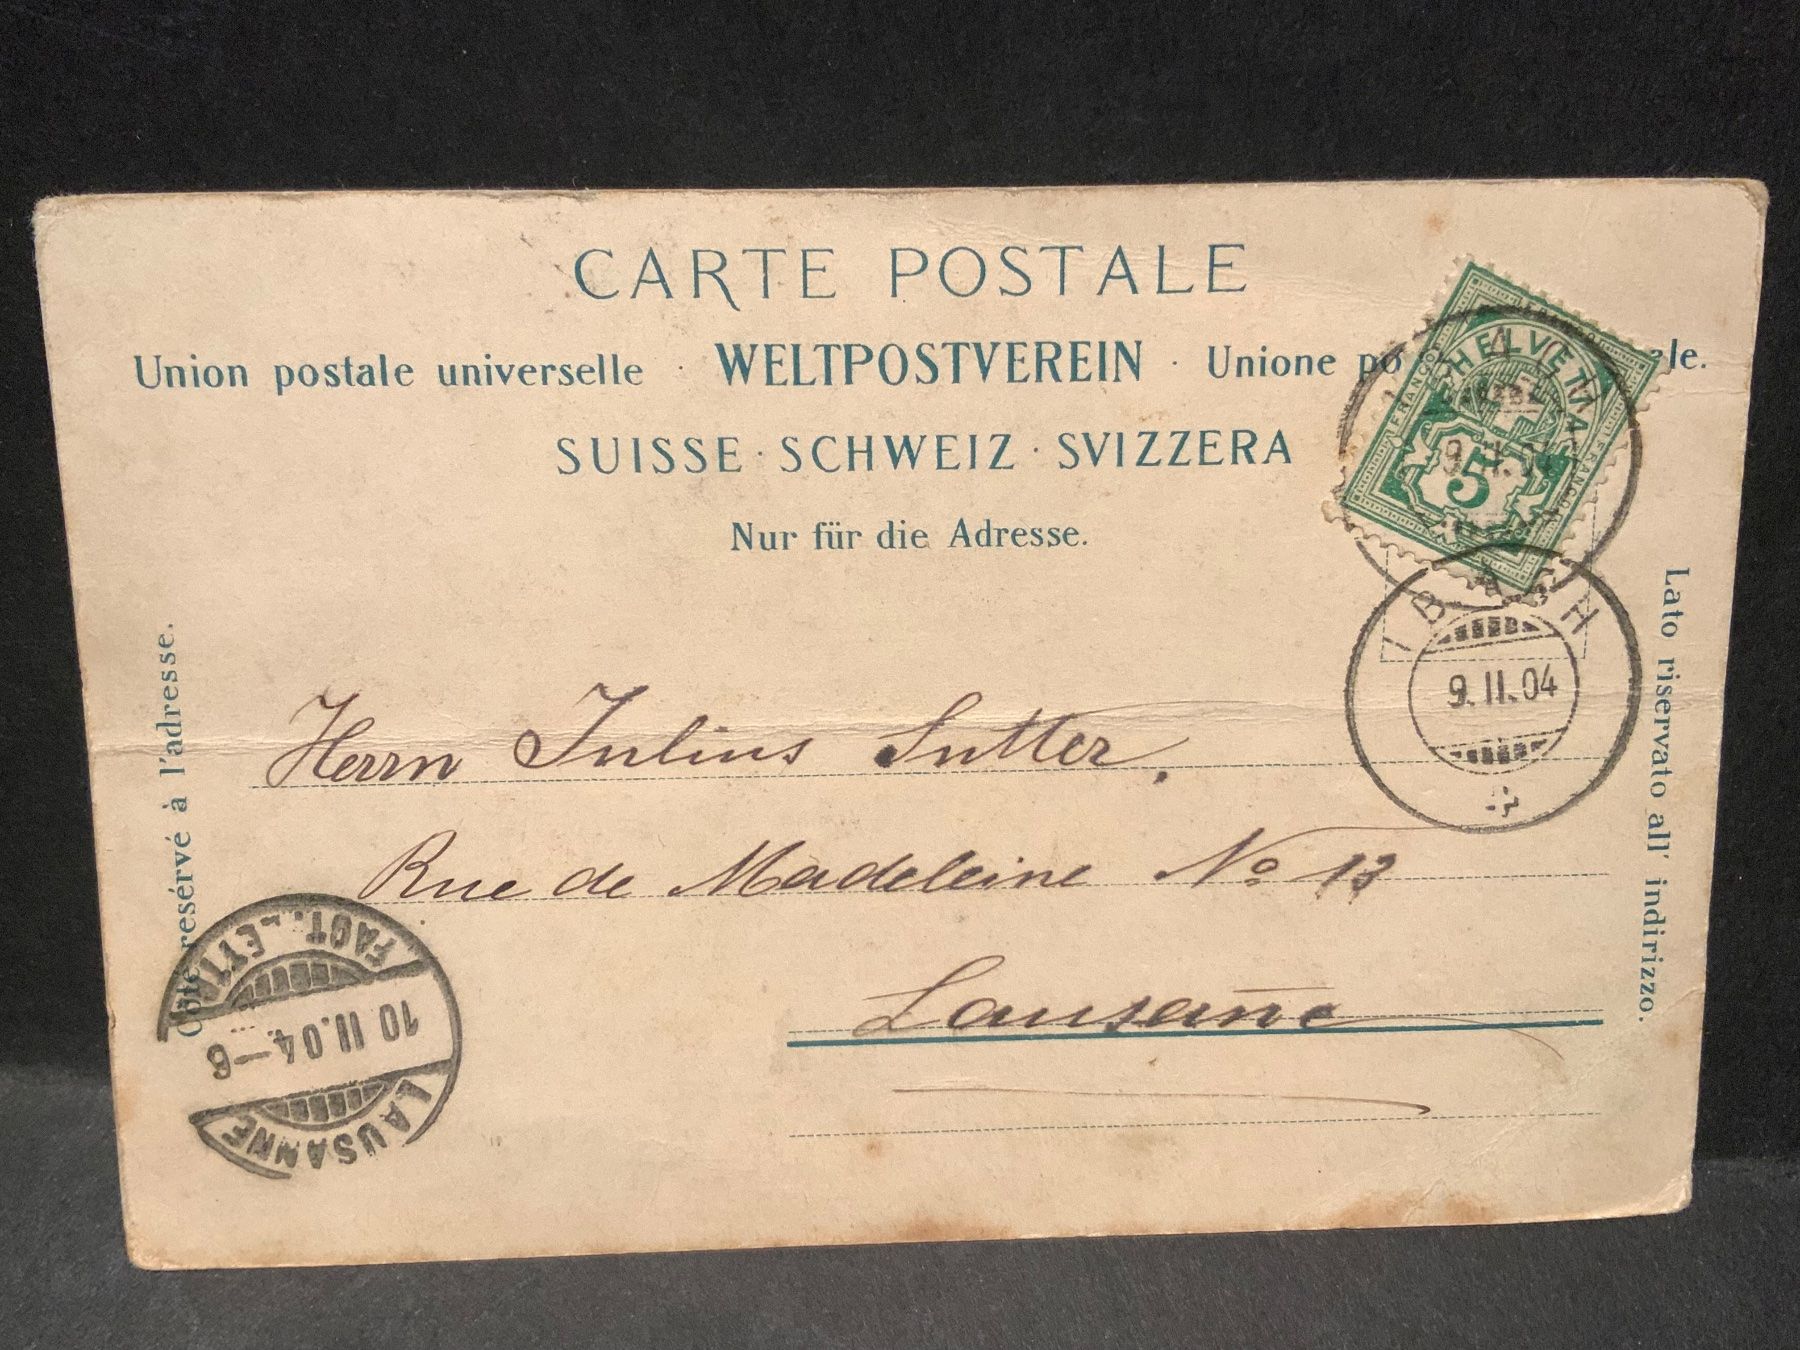 CARTE POSTALE
Union postale universelle · WELTPOSTVEREIN · Unione po le.
SUISSE · SCHWEIZ · SVIZZERA
Nur für die Adresse.
HELVETIA
FRANCO
5
9.II.04
IBACH
9.II.04
Côté resérvé à l'adresse.
Lato riservato all' indirizzo.
Herrn Julius Sutter,
Rue de Madeleine No 13
Lausanne
LAUSANNE
10 II.04-6
FACT. LETTR.